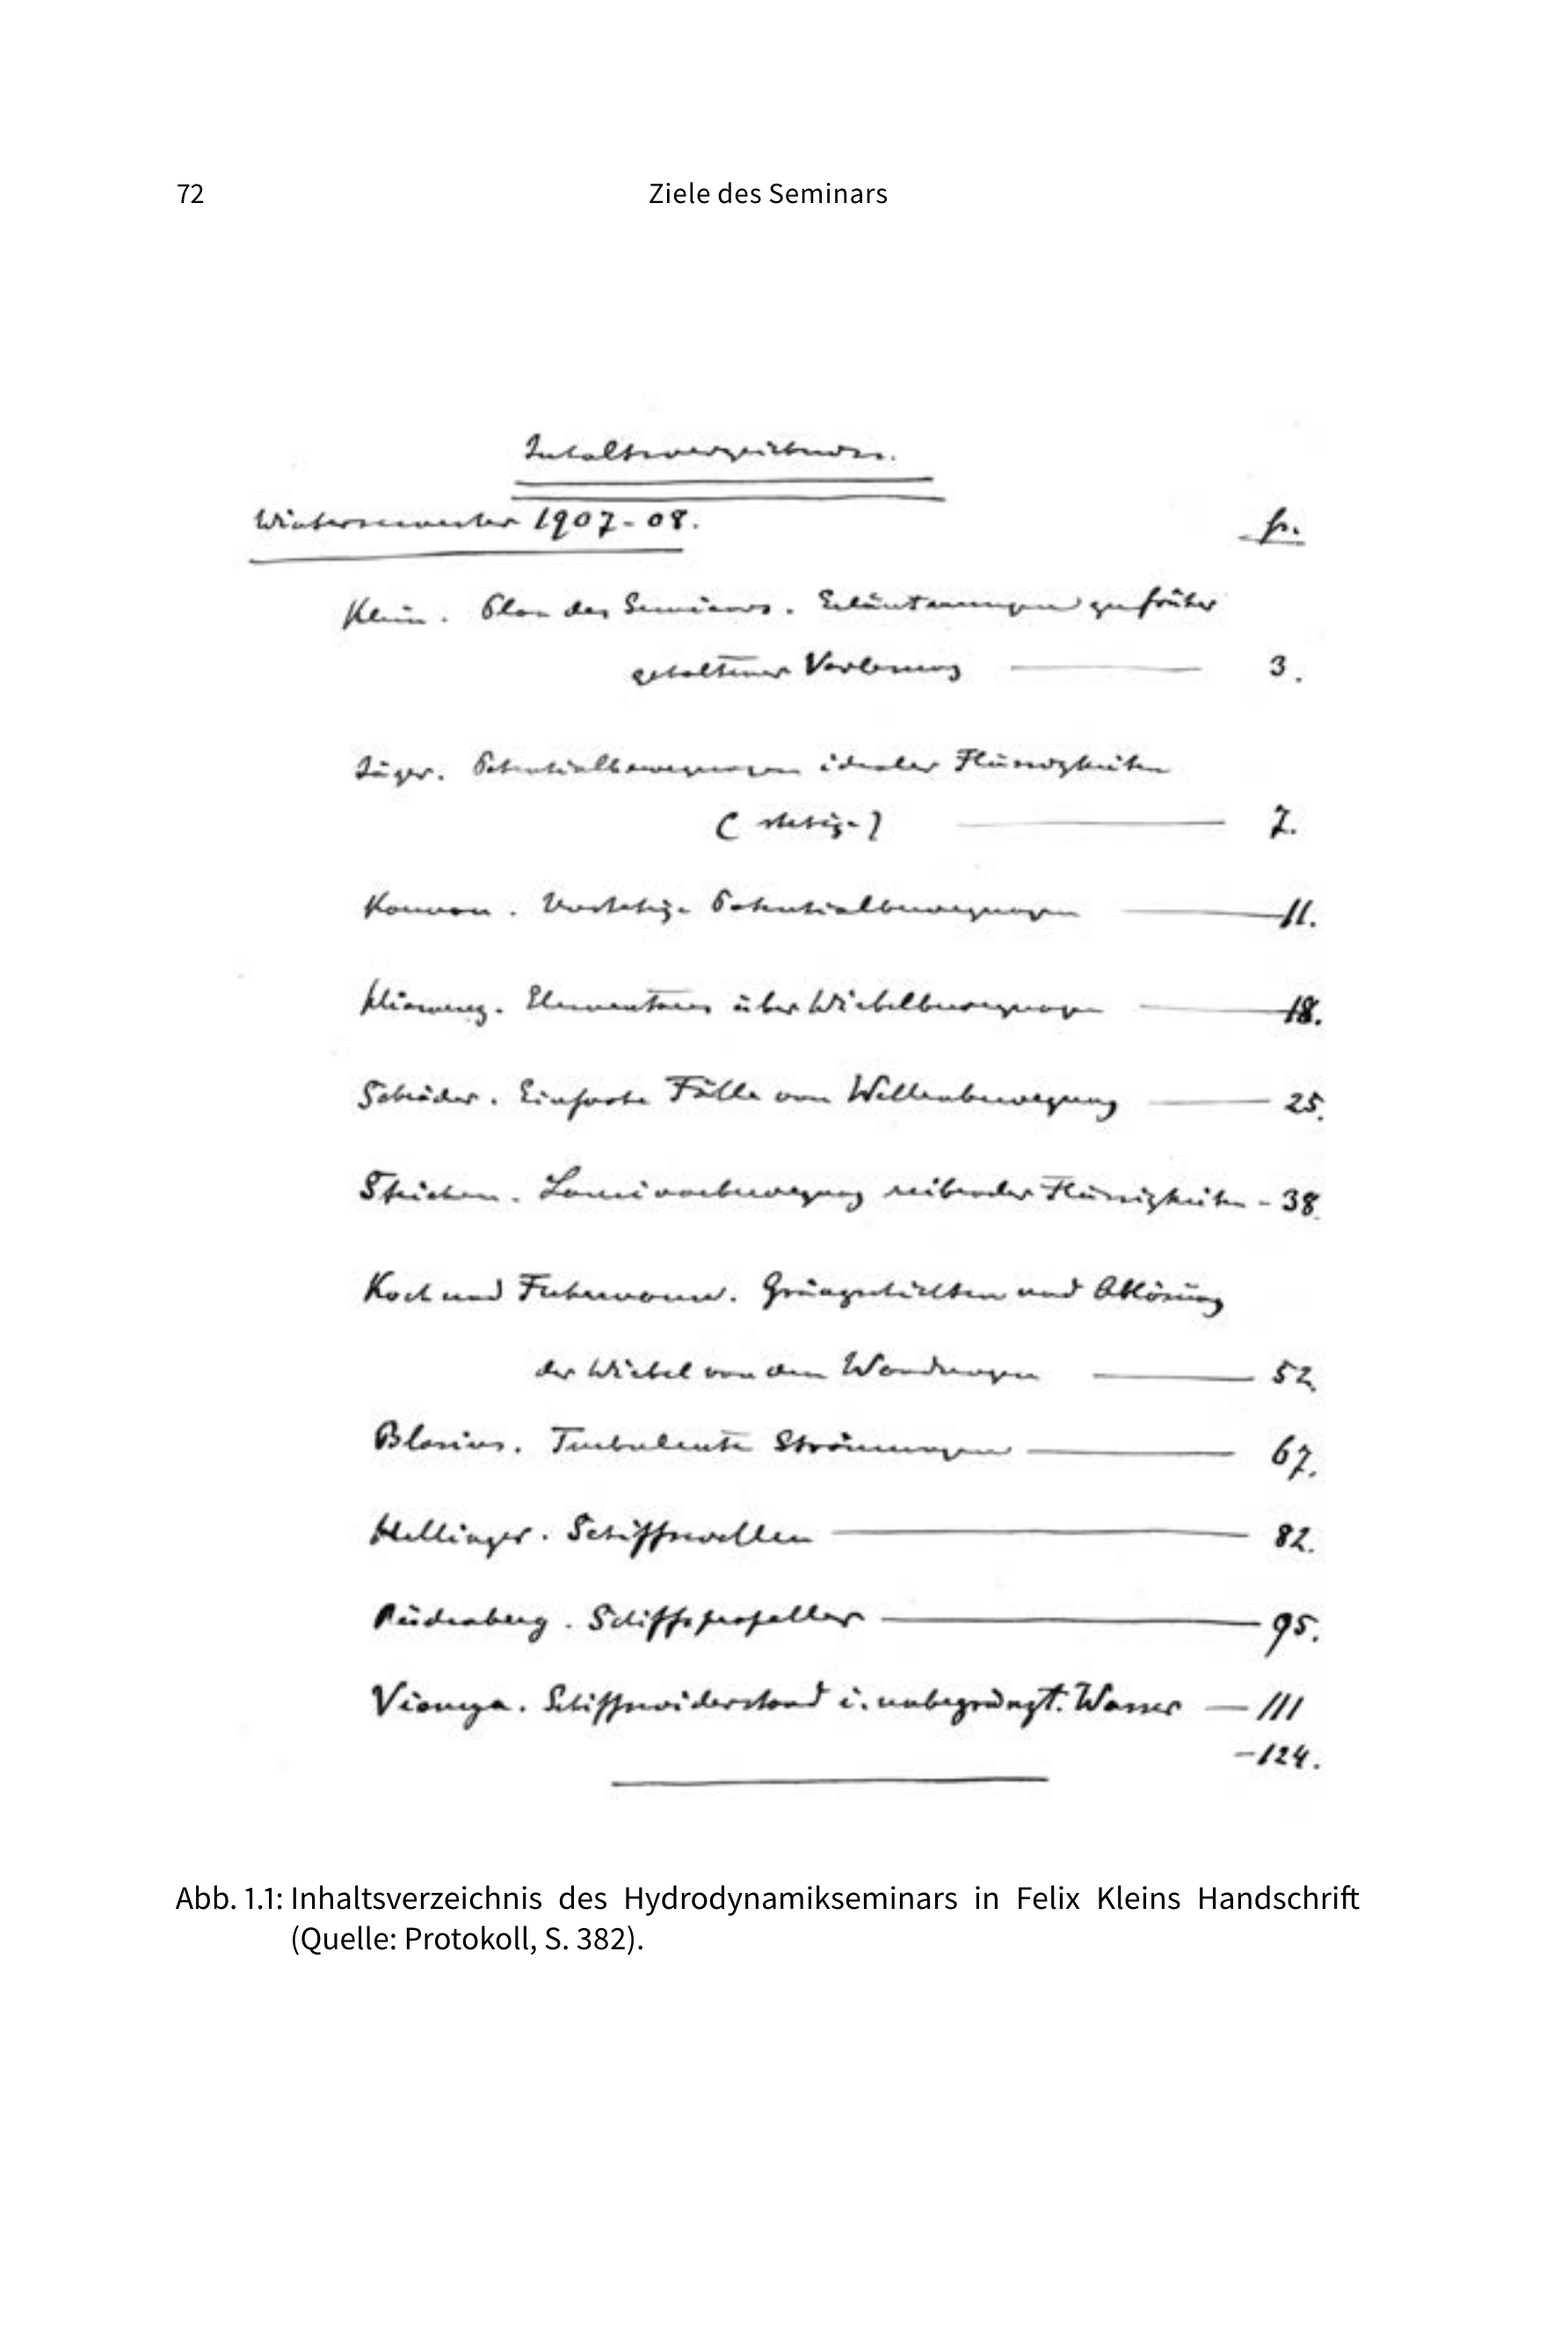 72
Ziele des Seminars
Inhaltsverzeichnis.
Wintersemester 1907-08.
p.
Klein. Plan des Seminars. Erläuterungen zu früher
gehaltener Vorlesung — 3.
Jäger. Potentialbewegungen idealer Flüssigkeiten
(stetige) — 7.
Unstetige Potentialbewegungen — 11.
Elementares über Wirbelbewegungen — 18.
Schröder. Einfache Fälle von Wellenbewegung — 25.
Laminarbewegung reibender Flüssigkeiten - 38.
Koch und Fuhrmann. Gränzschichten und Ablösung
der Wirbel von den Wandungen — 52.
Blasius. Turbulente Strömungen — 67.
Hellinger. Schiffswellen — 82.
Rüdenberg. Schiffspropeller — 95.
Schiffswiderstand i. unbegränzt. Wasser — 111
-124.
Abb. 1.1: Inhaltsverzeichnis des Hydrodynamikseminars in Felix Kleins Handschrift
(Quelle: Protokoll, S. 382).